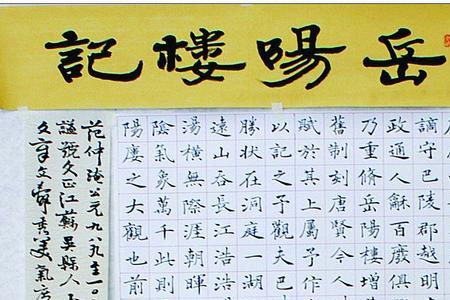 岳陽樓記
謫守巴陵郡越明
政通人龢百廢俱
乃重脩岳陽樓增
舊制刻唐賢今人
賦於其上屬予作
以記之予觀夫巴
勝狀在洞庭一湖
遠山吞長江浩浩
湯橫無際涯朝暉
陰氣象萬千此則
陽廔之大觀也前
范仲淹公元九八九至一〇
諡號文正江蘇吳縣人
文章文辭秀美氣